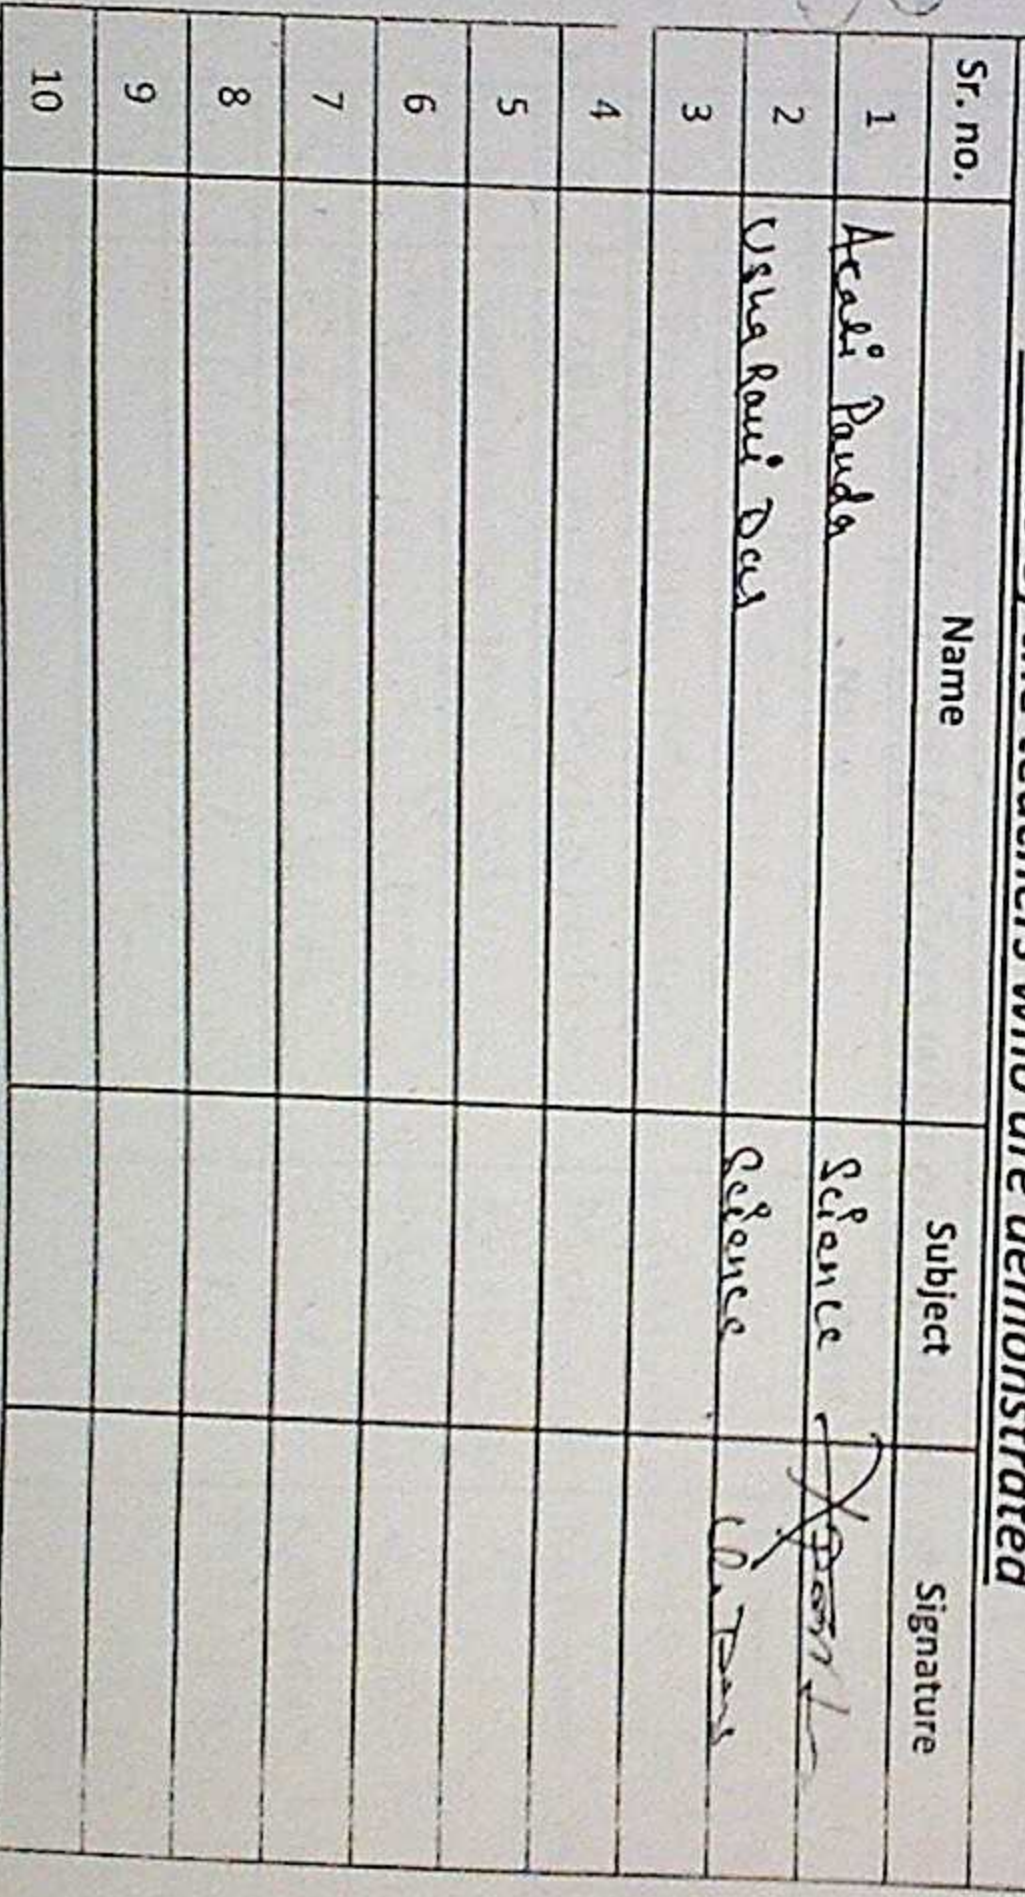 by the teachers who are demonstrated
Sr. no. Name Subject Signature
1 Arali Panda Science
2 Usha Rani Das Science U. Das
3
4
5
6
7
8
9
10